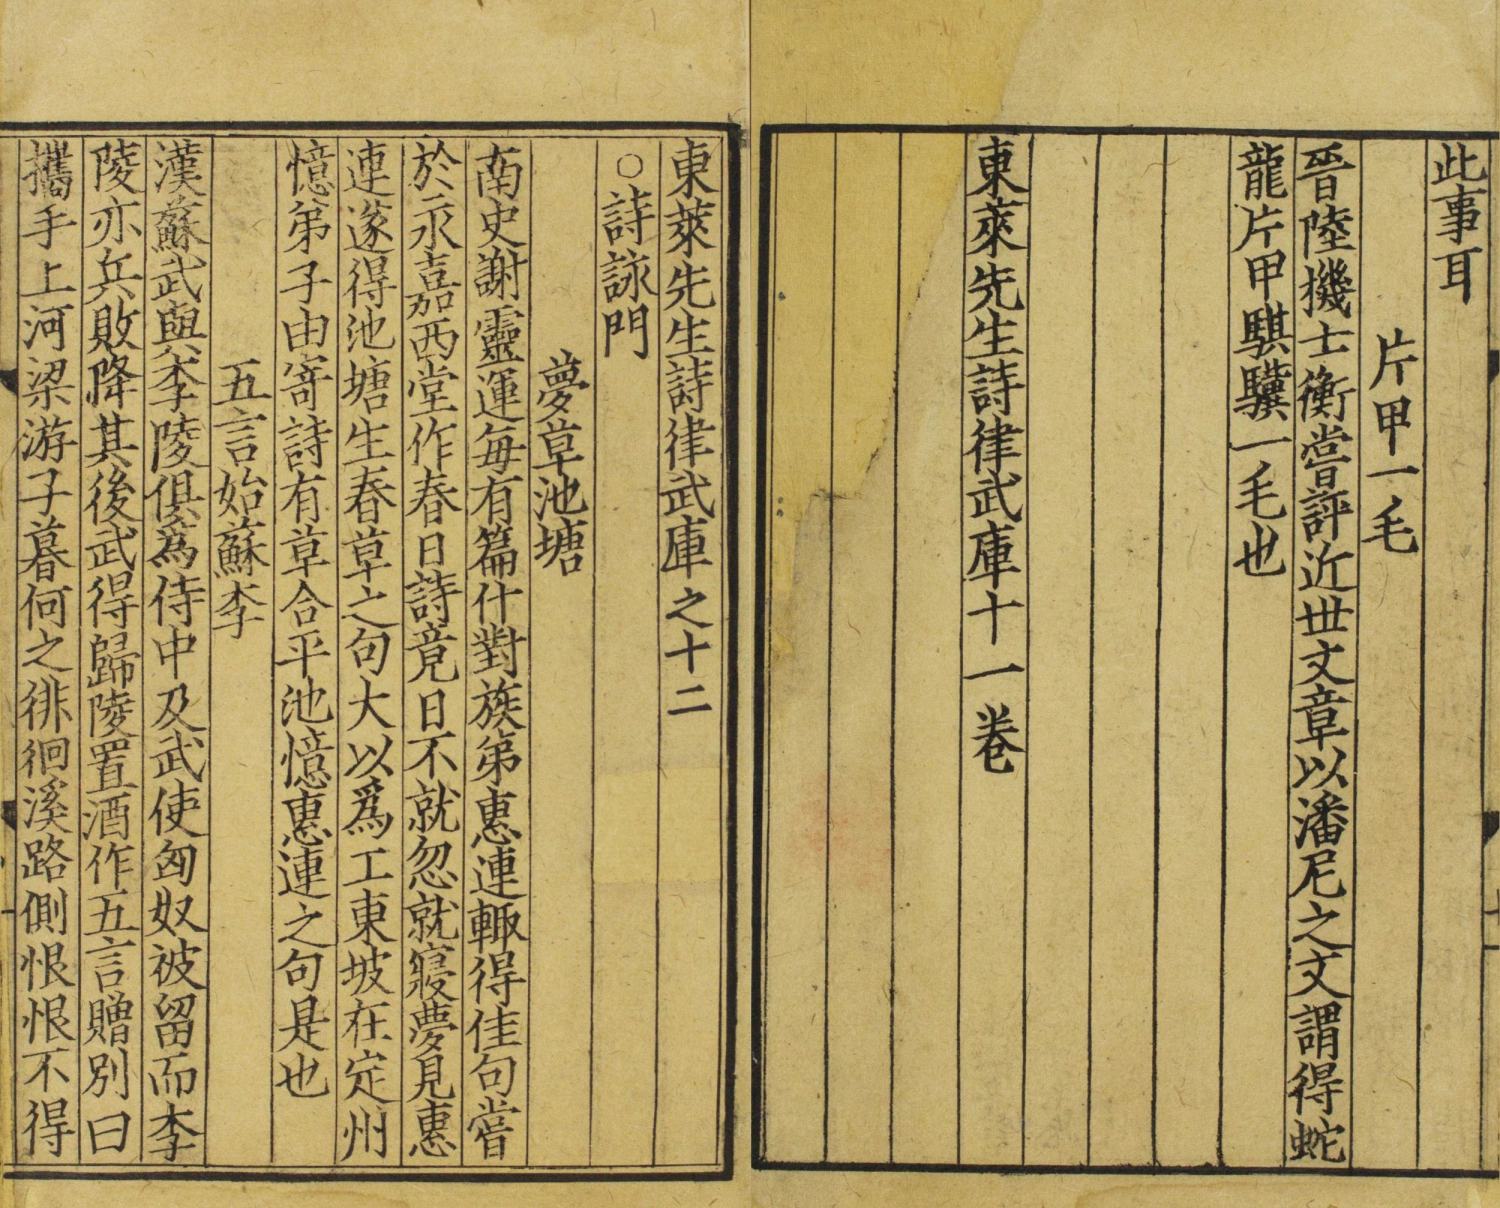 此事耳
片甲一毛
晉陸機士衡嘗評近世文章以潘尼之文謂得蛇
龍片甲騏驥一毛也
東萊先生詩律武庫十一卷
東萊先生詩律武庫之十二
○詩詠門
夢草池塘
南史謝靈運每有篇什對族弟惠連輙得佳句嘗
於永嘉西堂作春日詩竟日不就忽就寢夢見惠
連遂得池塘生春草之句大以爲工東坡在定州
憶弟子由寄詩有草合平池憶惠連之句是也
五言始蘇李
漢蘇武與李陵俱爲侍中及武使匈奴被留而李
陵亦兵敗降其後武得歸陵置酒作五言贈別曰
攜手上河梁游子暮何之徘徊溪路側恨恨不得